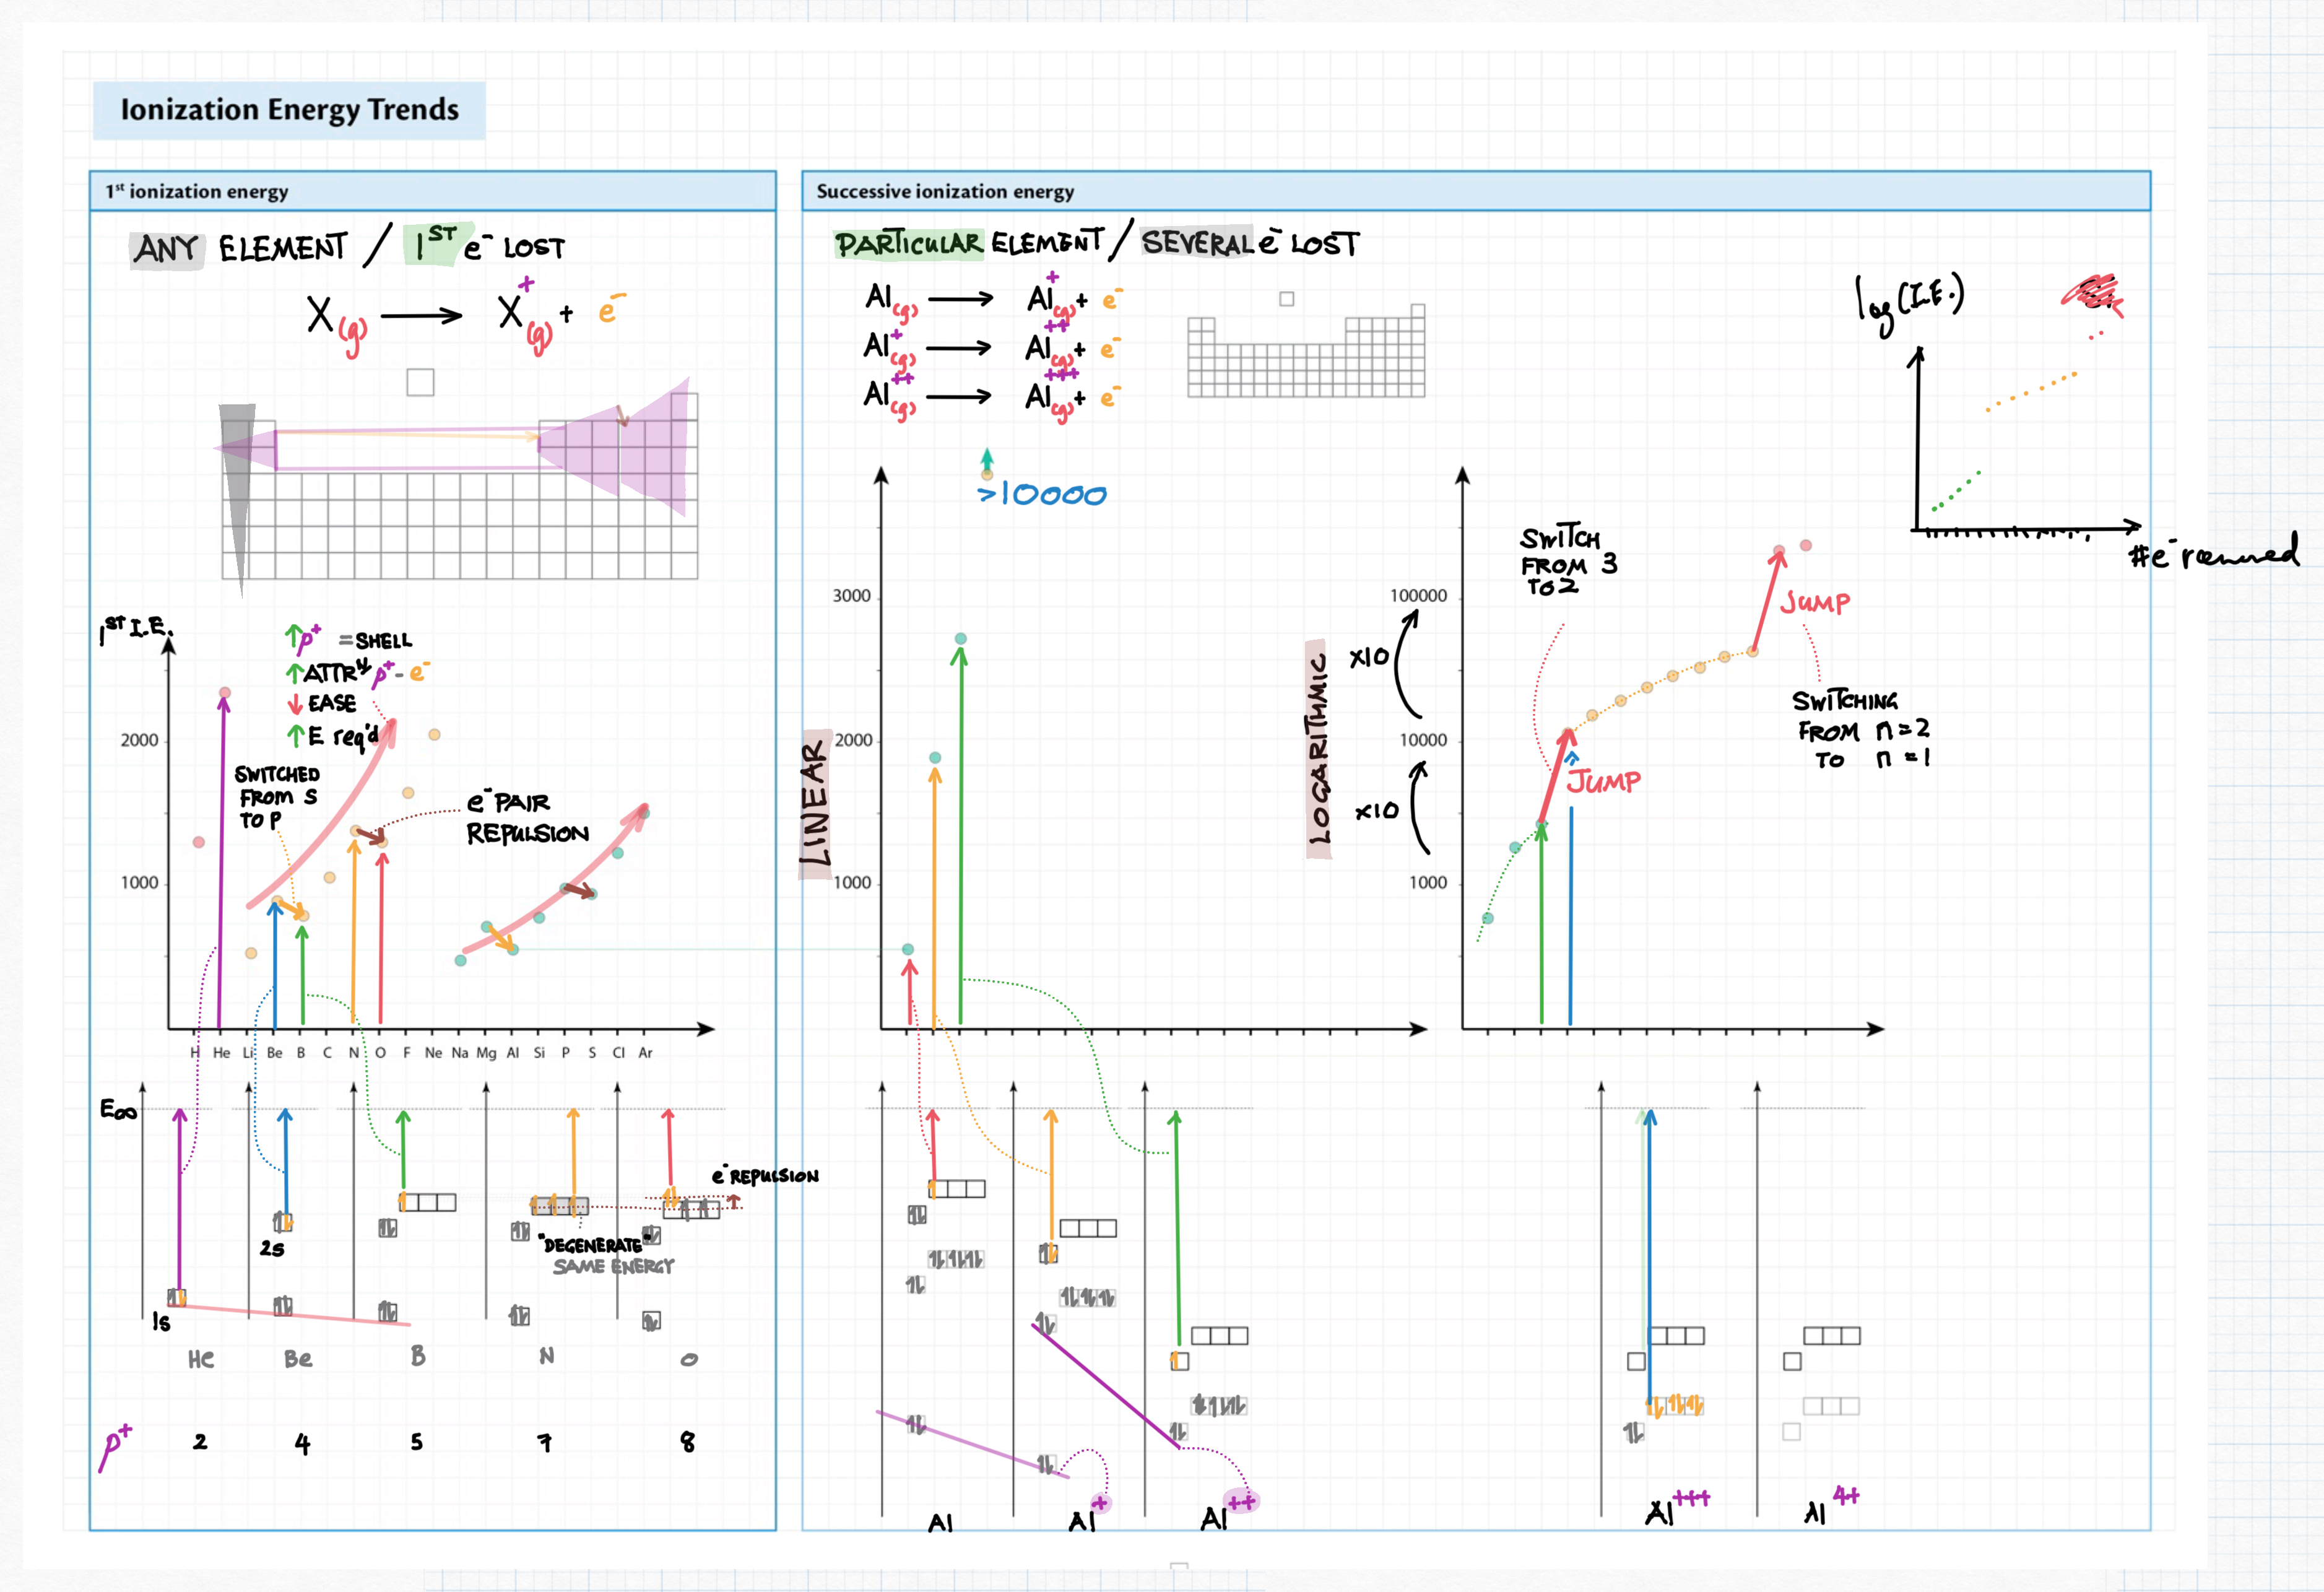 Ionization Energy Trends
1st ionization energy
ANY ELEMENT / 1ST e- LOST
X(g) → X+(g) + e-
1ST I.E.
↑p+ = SHELL
↑ATTRN p+ - e-
↓ EASE
↑ E req'd
SWITCHED
FROM S
TO P
e- PAIR
REPULSION
2000
1000
H He Li Be B C N O F Ne Na Mg Al Si P S Cl Ar
E∞
e- REPULSION
2s
"DEGENERATE"
SAME ENERGY
1s
He Be B N O
p+ 2 4 5 7 8
Successive ionization energy
PARTICULAR ELEMENT / SEVERAL e- LOST
Al(g) → Al+(g) + e-
Al+(g) → Al++(g) + e-
Al++(g) → Al+++(g) + e-
>10000
LINEAR
3000
2000
1000
LOGARITHMIC
100000
10000
1000
x10
x10
SWITCH
FROM 3
TO 2
JUMP
JUMP
SWITCHING
FROM n=2
TO n=1
log(I.E.)
#e- removed
Al Al+ Al++ Al+++ Al4+